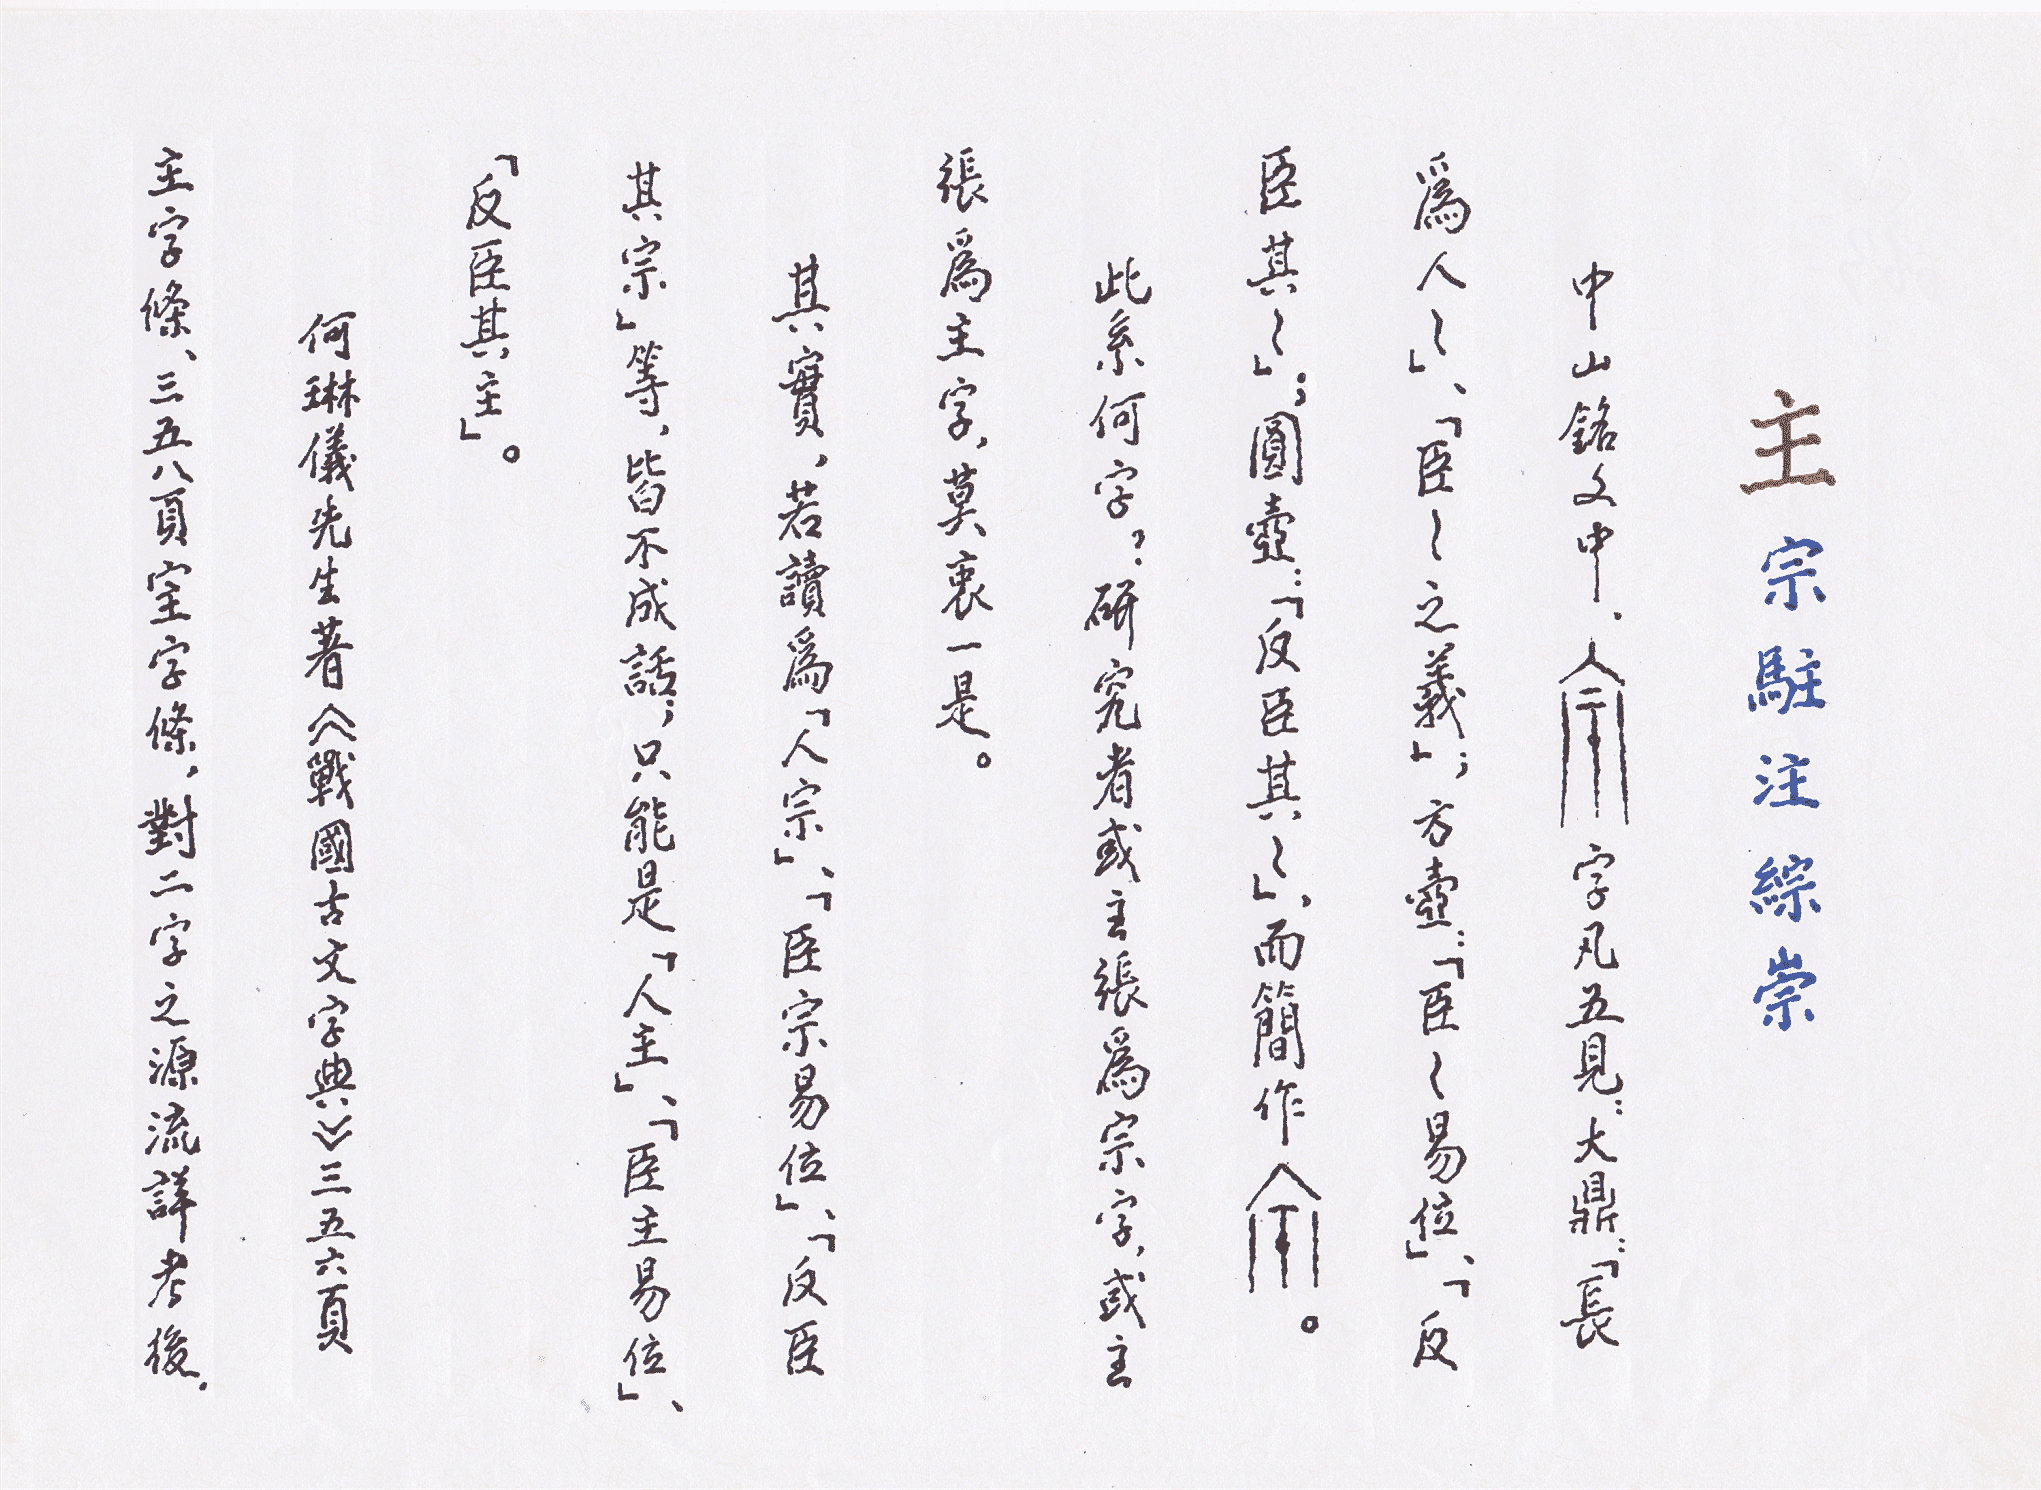 主宗駐注綜崇
中山銘文中、字凡五見：大鼎：「長
爲人〻」、「臣〻之義」；方壺：「臣〻易位」、「反
臣其〻」；圓壺：「反臣其〻」，而簡作。
此系何字？研究者或主張爲宗字，或主
張爲主字，莫衷一是。
其實，若讀爲「人宗」、「臣宗易位」、「反臣
其宗」等，皆不成話；只能是「人主」、「臣主易位」、
「反臣其主」。
何琳儀先生著《戰國古文字典》三五六頁
主字條、三五八頁宔字條，對二字之源流詳考後，